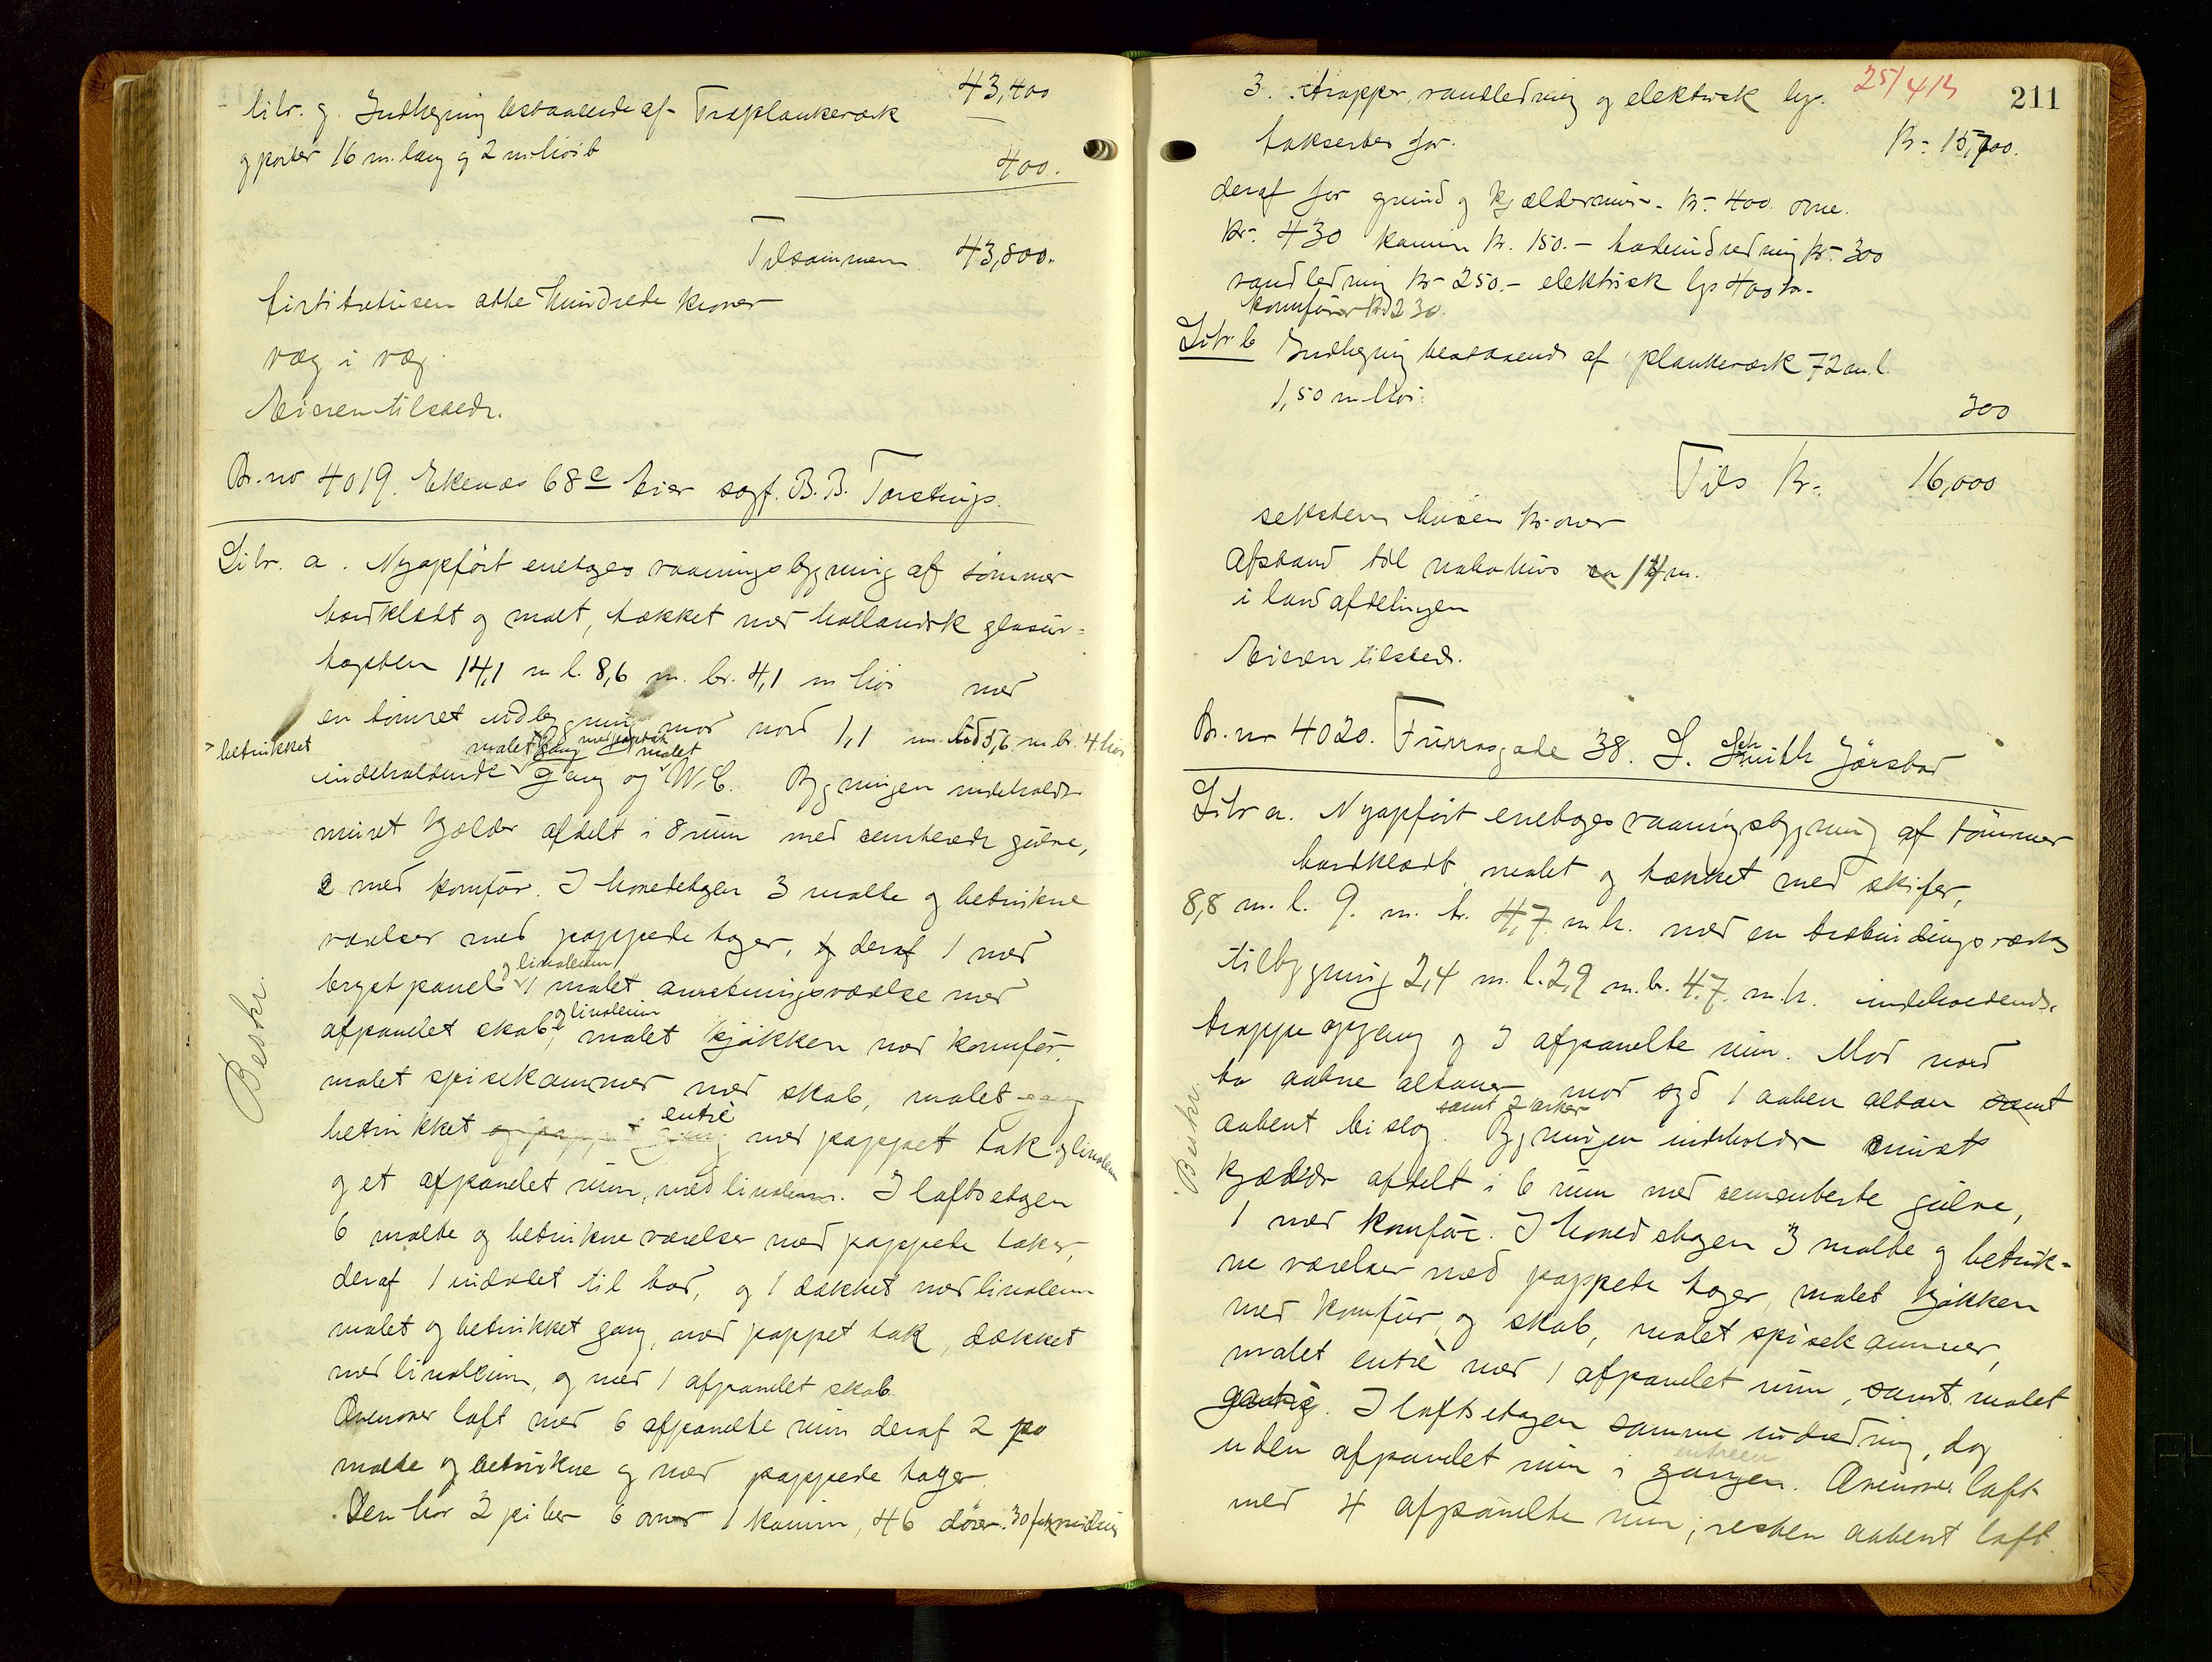 43,400
Litr. g. Indhegning bestaaende af Træplankeværk
g porter 16 m. lang g 2 m. høit
400.
Tilsammen 43,800.
firtitretusen atte hundrede kroner
væg i væg.
Eieren tilstede.
Br. nr 4019. Ekenæs 68c Eier sagf. B. B. Torstrup.
Litr. a. Nyopført enetages vaaningsbygning af tømmer
bordklædt og malt, tækket med hollandsk glasur=
tagsten 14,1 m l. 8,6 m. br. 4,1 m høi med
en tømret udbygning mod nord 1,1 m. 5,6 m. br. 4 høi
> betrukket
malet malet
indeholdende gang og W.C. Bygningen indeholder
muret kjælder afdelt i 8 rum med cementerede gulve,
2 med komfør. I hovedetagen 3 malte og betrukne
værelser med pappede tager, deraf 1 med
og linoleum
brystpanel 1 malet anretningsværelse med
og linoleum
afpanelet skab, malet kjøkken med komfør,
malet spisekammer med skab, malet gang
entré
betrukket og pappet gang med pappet tak og linoleum
og et afpanelet rum, med linoleum. I loftsetagen
6 malte og betrukne værelser med pappede taker,
deraf 1 indredet til bad, og 1 dækket med linoleum
malet og betrukket gang, med pappet tak, dækket
med linoleum, og med 1 afpanelet skab.
Ovenover loft med 6 afpanelte rum deraf 2
malte og betrukne og med pappede tager.
Den har 2 piber 6 ovner 1 kamin, 46 døre. 30
Beskr.
25/4 13
211
3. trapper, vandledning og elektrisk lys.
takseres for. Kr. 15,700.
deraf for grund og kjældermur. Kr. 400. ovne.
Kr. 430 kamin Kr. 150.- badeindredning Kr. 300
vandledning Kr 250.- elektrisk lys 400 kr.
komfører Kr 230.
Litr b Indhegning bestaaende af plankeværk 72 m. l.
1,50 m høi.
300
Tils Kr. 16,000
seksten tusen kroner
Afstand til nabohus ca 14 m.
i landafdelingen
Eieren tilstede.
Br. nr 4020. Furrasgade 38. S. Smith Jørstad
Litr a. Nyopført enetages vaaningsbygning af tømmer
bordklædt malet og tækket med skifer,
8,8 m. l. 9. m. br. 4,7. m h. med en træbindingsværks
tilbygning 2,4 m. l. 2,9 m. b. 4,7. m. h. indeholdende
trappeopgang og 3 afpanelte rum. Mod nord
to aabne altaner mod syd 1 aaben altan samt
samt 2 arker
aabent bislag. Bygningen indeholder muret
kjælder afdelt i 6 rum med cementerte gulve,
1 med komfør. I hovedetagen 3 malte og betruk-
ne værelser med pappede tager, malet kjøkken
med komfur, og skab, malet spisekammer,
malet entré med 1 afpanelet rum, samt malet
gang. I loftsetagen samme indredning, dog
entreen
uden afpanelet rum i gangen. Ovenover loft
med 4 afpanelte rum; resten aabent loft.
Beskr.